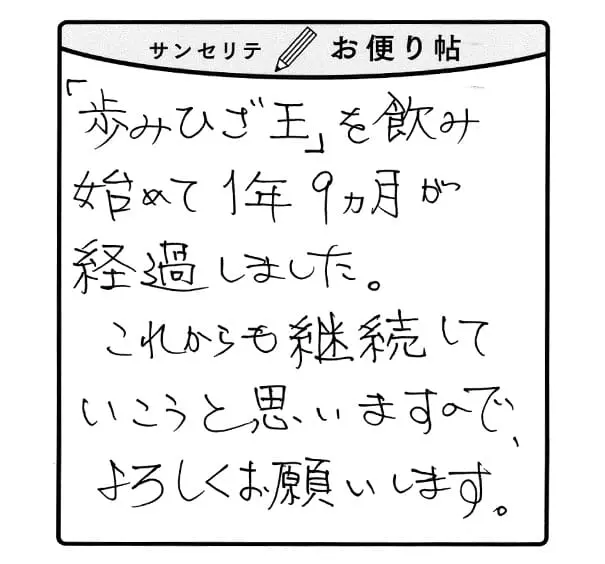 サンセリテ お便り帖
「歩みひざ王」を飲み
始めて1年9ヵ月が
経過しました。
これからも継続して
いこうと思いますので、
よろしくお願いします。